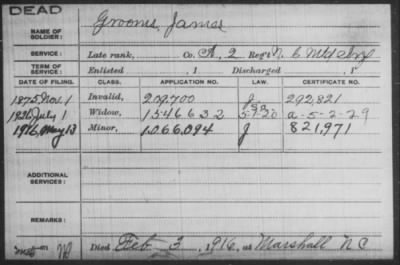 DEAD
NAME OF SOLDIER: Grooms, James
SERVICE: Late rank, Co. A, 2 Reg't N. C. Mtd Inf
TERM OF SERVICE: Enlisted , 1 Discharged , 1
DATE OF FILING. CLASS. APPLICATION NO. LAW. CERTIFICATE NO.
1875 Nov. 1 Invalid, 209.700 J 292,821
1926 July 1 Widow, 1546632 5-1-20 a-5-2-29
1916, May 13 Minor, 1,066,094 J 821,971
ADDITIONAL SERVICES:
REMARKS:
Died Feb 3, 1916, at Marshall N C